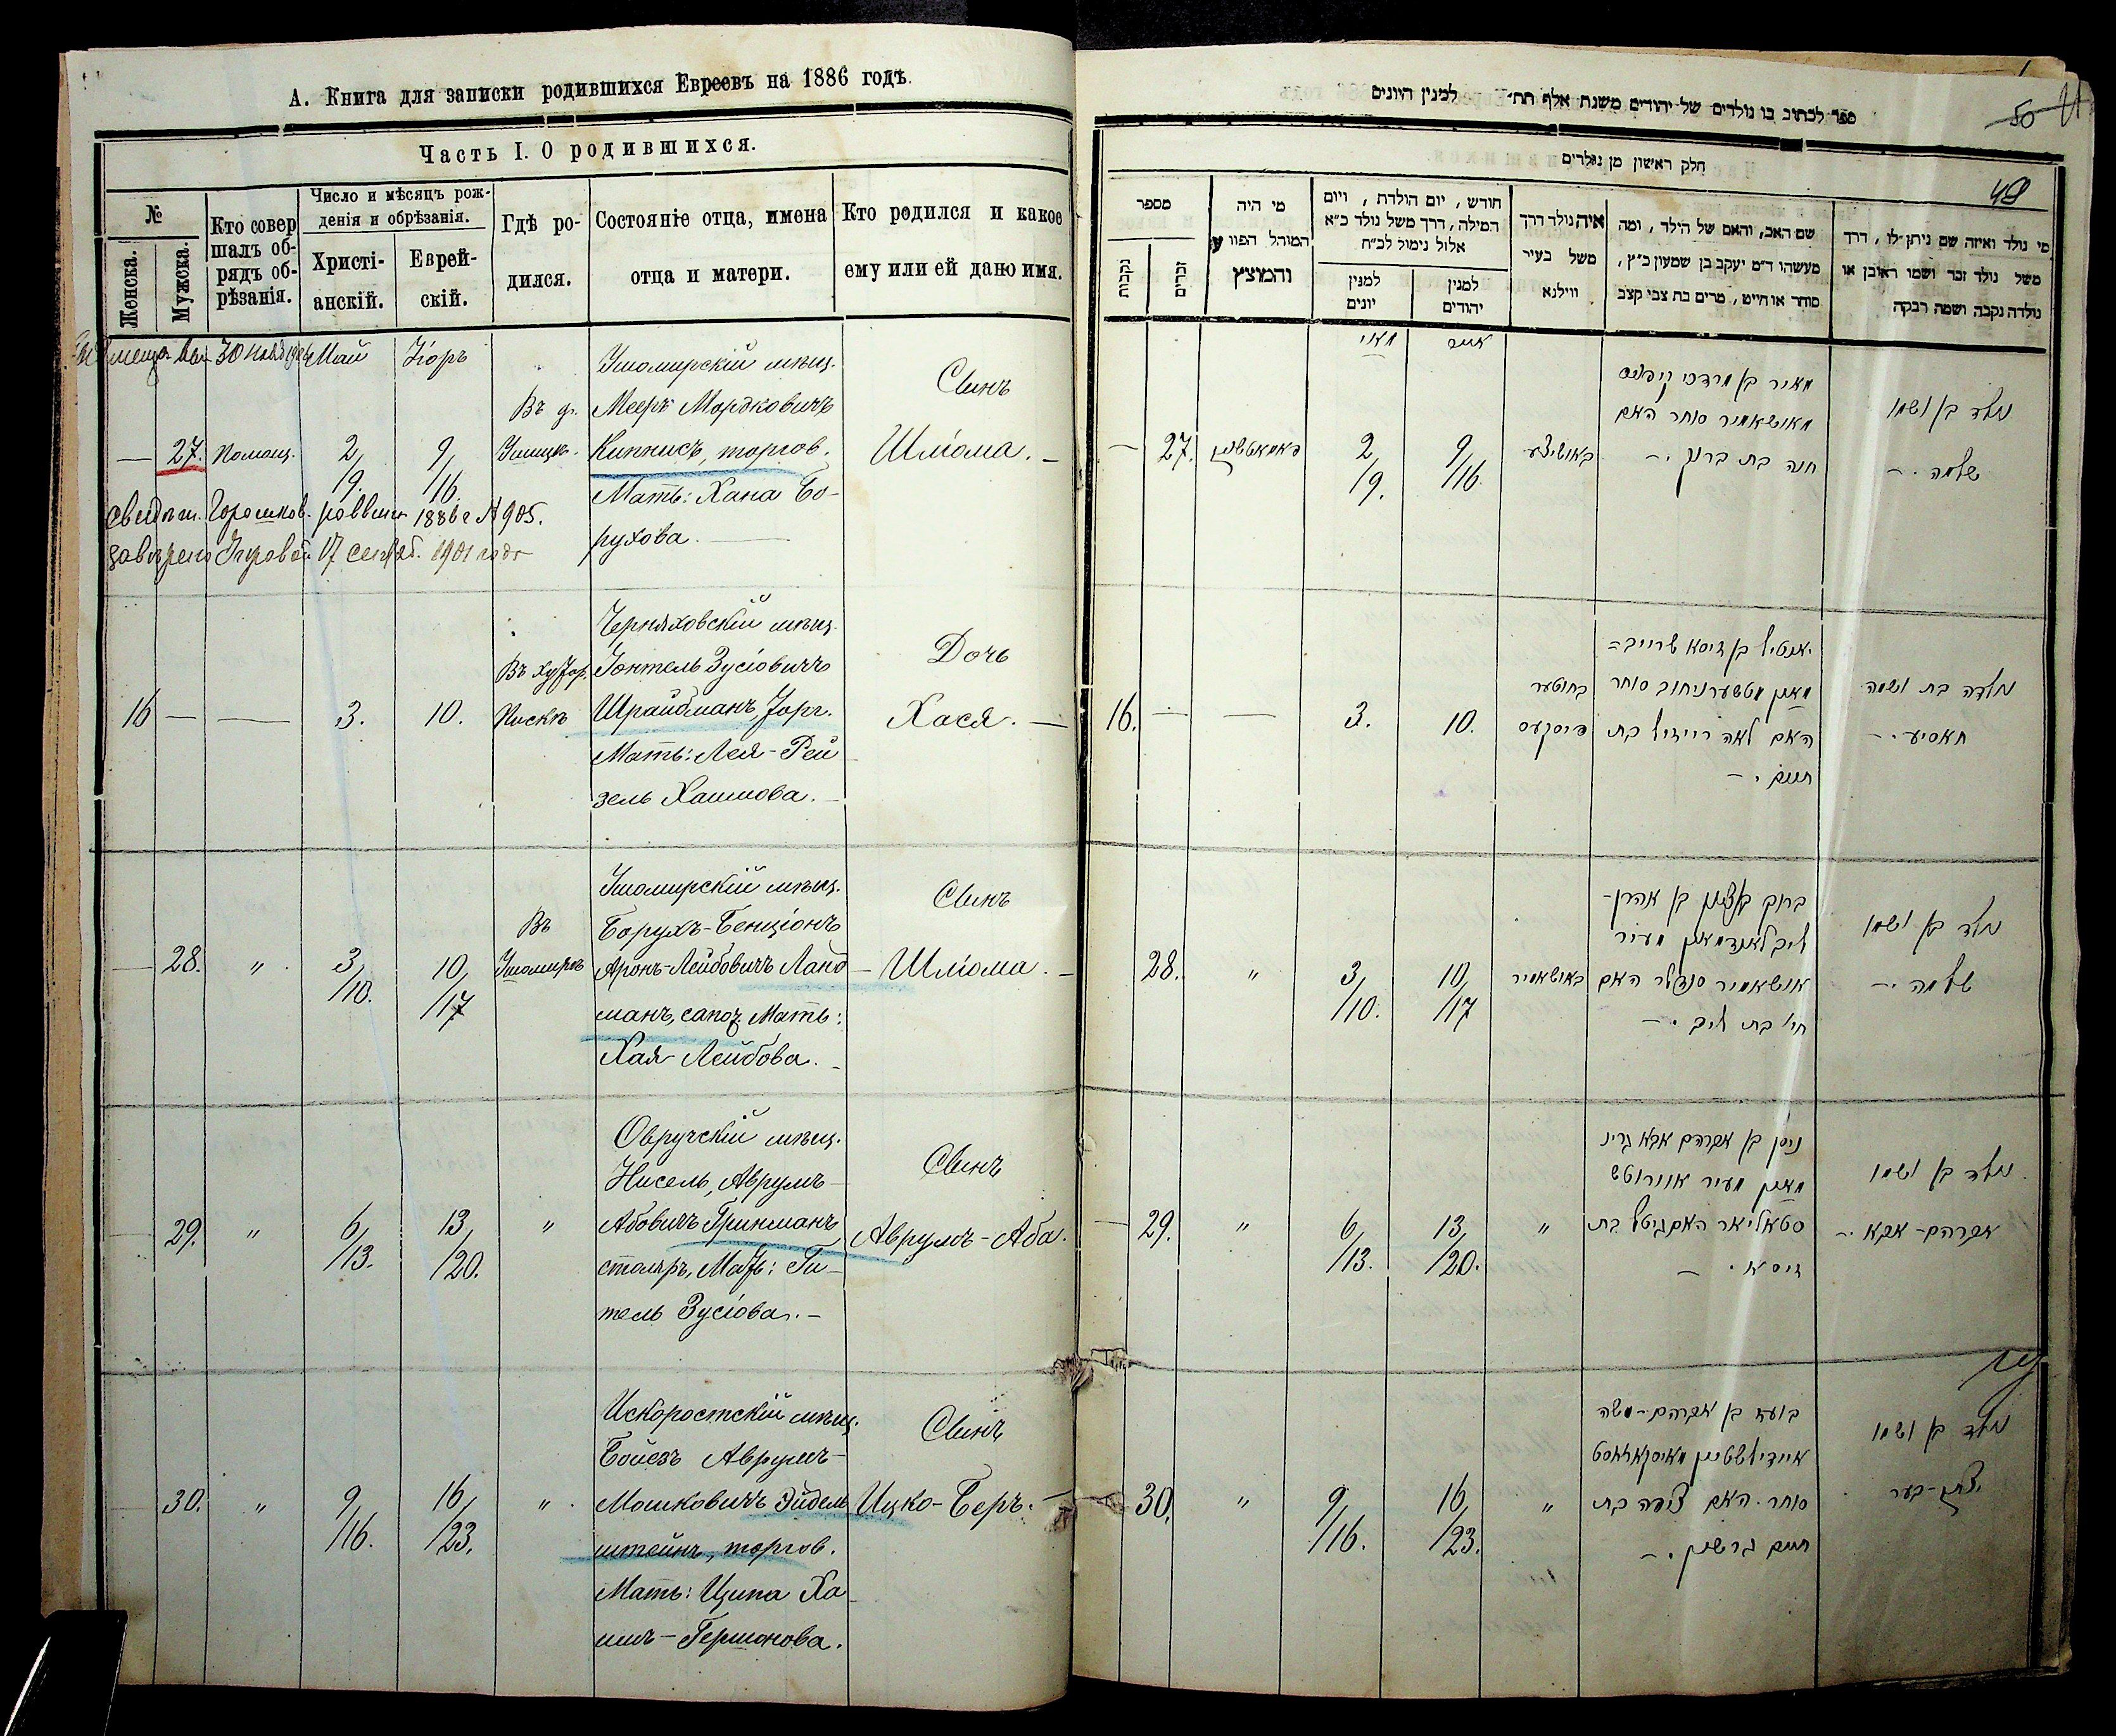 А. Книга для записки родившихся Евреевъ на 1886 годъ.
Часть I. О родившихся.
№
Женска.
Мужска.
Кто совер
шалъ об-
рядъ об-
рѣзанія.
Число и мѣсяцъ рож-
денія и обрѣзанія.
Христі-
анскій.
Еврей-
скій.
Гдѣ ро-
дился.
Состояніе отца, имена
отца и матери.
Кто родился и какое
ему или ей дано имя.
Май
Іюръ
— 27. Помощ.
2/9.
9/16.
Въ д.
Ушомирскій мѣщ.
Мееръ Мордковичъ
Кипнисъ, торгов.
Мать: Хана Бо-
рухова. —
Сынъ
Шліома. —
1886 г. №905.
17 1901 года
16 — — 3. 10.
Въ хутор.
Пискѣ
Черняховскій мѣщ.
Іонтель Зусіовичъ
Шрайбманъ, Торг.
Мать: Лея-Рей
зель Хаимова. —
Дочь
Хася. —
— 28. " 3/10. 10/17
Въ
Ушомирѣ
Ушомирскій мѣщ.
Борухъ-Бенціонъ
Аронъ-Лейбовичъ Ланд-
манъ, сапож. Мать:
Хая Лейбова. —
Сынъ
Шліома. —
— 29. " 6/13. 13/20. "
Овручскій мѣщ.
Нисель, Аврумъ-
Абовичъ Гринманъ
столяръ, Мать: Ги-
тель Зусіова. —
Сынъ
Аврумъ-Аба.
— 30. " 9/16. 16/23. "
Искоростскій мѣщ.
Бойезъ Аврумъ-
Мошковичъ Эйдель
штейнъ, торгов.
Мать: Ципа Ха
имъ-Гершонова.
Сынъ
Ицко-Беръ. —
ספר לכתוב בו נולדים של יהודים משנת אלף תת" למנין היונים
50
49
חלק ראשון מן נולדים
מספר
נקבות
זכרים
מי היה
המוהל הפורע
והמוצץ
חודש, יום הולדת, ויום
המילה, דרך משל נולד כ"א
אלול נימול לכ"ח
למנין
יונים
למנין
יהודים
איה נולד דרך
משל בעיר
ווילנא
שם האב, והאם של הילד, ומה
מעשהו ד"מ יעקב בן שמעון כ"ץ,
סוחר או חייט, מרים בת צבי קצב
מי נולד ואיזה שם ניתן לו, דרך
משל נולד זכר ושמו ראובן או
נולדה נקבה ושמה רבקה
מאיי
אייר
— 27. 2/9. 9/16.
מאיר בן מרדכי קיפניס
מאושאמיר סוחר האם
חנה בת ברוך. —
נולד בן ושמו
שלמה. —
16. — — 3. 10.
בחוטער
פיסקעס
יאנטיל בן זיסא שרייב=
מאן מטשערניחוב סוחר
האם לאה רייזיל בת
חיים. —
נולדה בת ושמה
חאסיע. —
28. " 3/10. 10/17
באושאמיר
ברוך בן ציון בן אהרן-
ליב לאנדמאן מעיר
אושאמיר סנדלר האם
חי' בת ליב. —
נולד בן ושמו
שלמה. —
— 29. " 6/13. 13/20. "
ניסן בן אברהם אבא גרינ
מאן מעיר אוורוטש
סטאליאר האם גיטל בת
זיסא. —
נולד בן ושמו
אברהם-אבא. —
30. " 9/16. 16/23. "
בועז בן אברהם-משה
איידילשטיין מאיסקאראסט
סוחר. האם ציפה בת
חיים גרשון. —
נולד בן ושמו
יצחק-בער